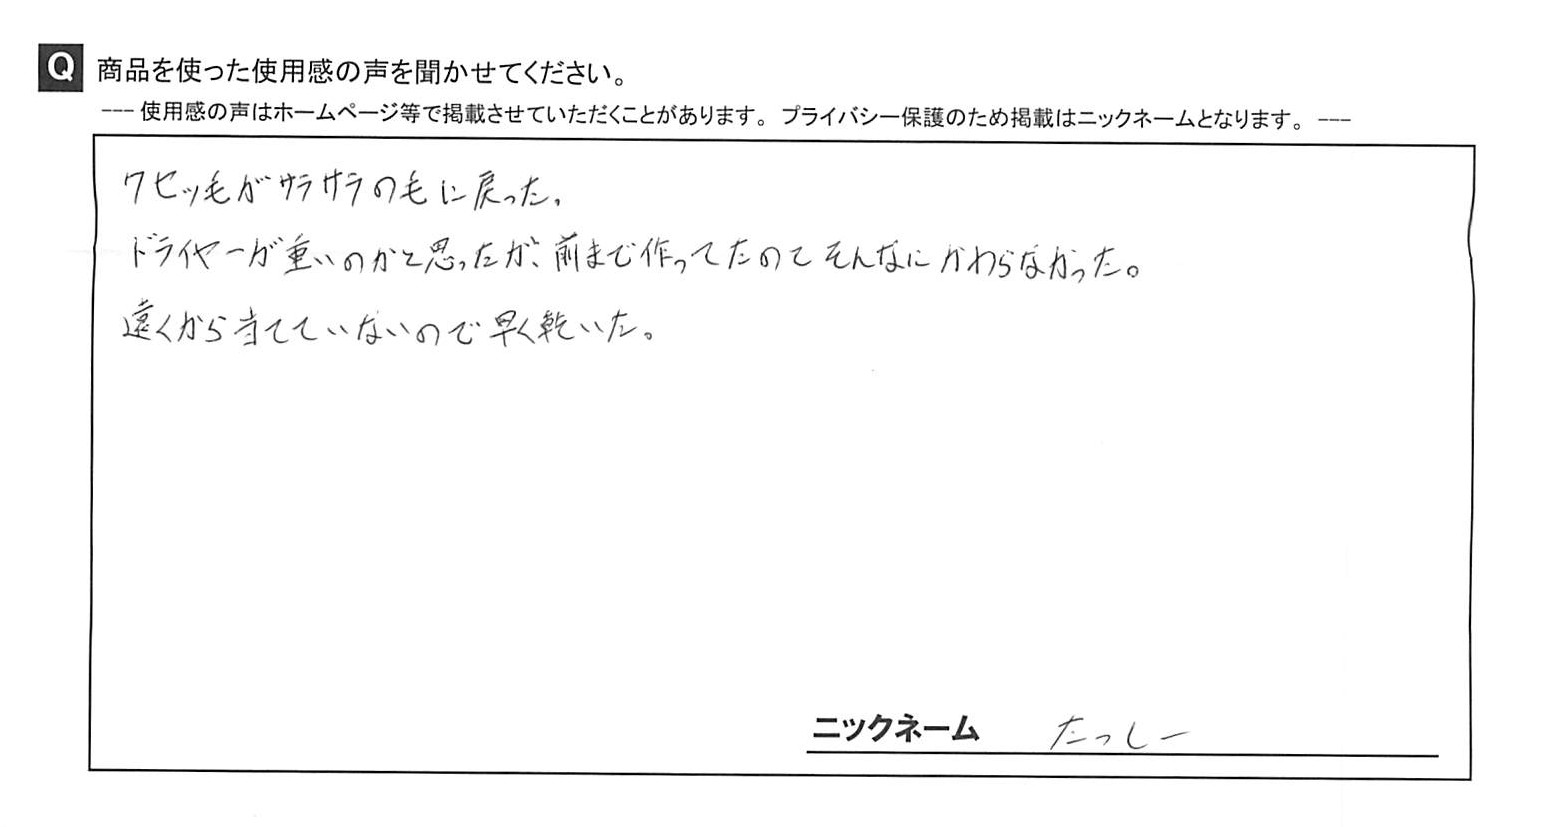 Q 商品を使った使用感の声を聞かせてください。
--- 使用感の声はホームページ等で掲載させていただくことがあります。プライバシー保護のため掲載はニックネームとなります。 ---
クセッ毛がサラサラの毛に戻った。
ドライヤーが重いのかと思ったが、前まで作ってたのとそんなにかわらなかった。
遠くから当てていないので早く乾いた。
ニックネーム たっしー